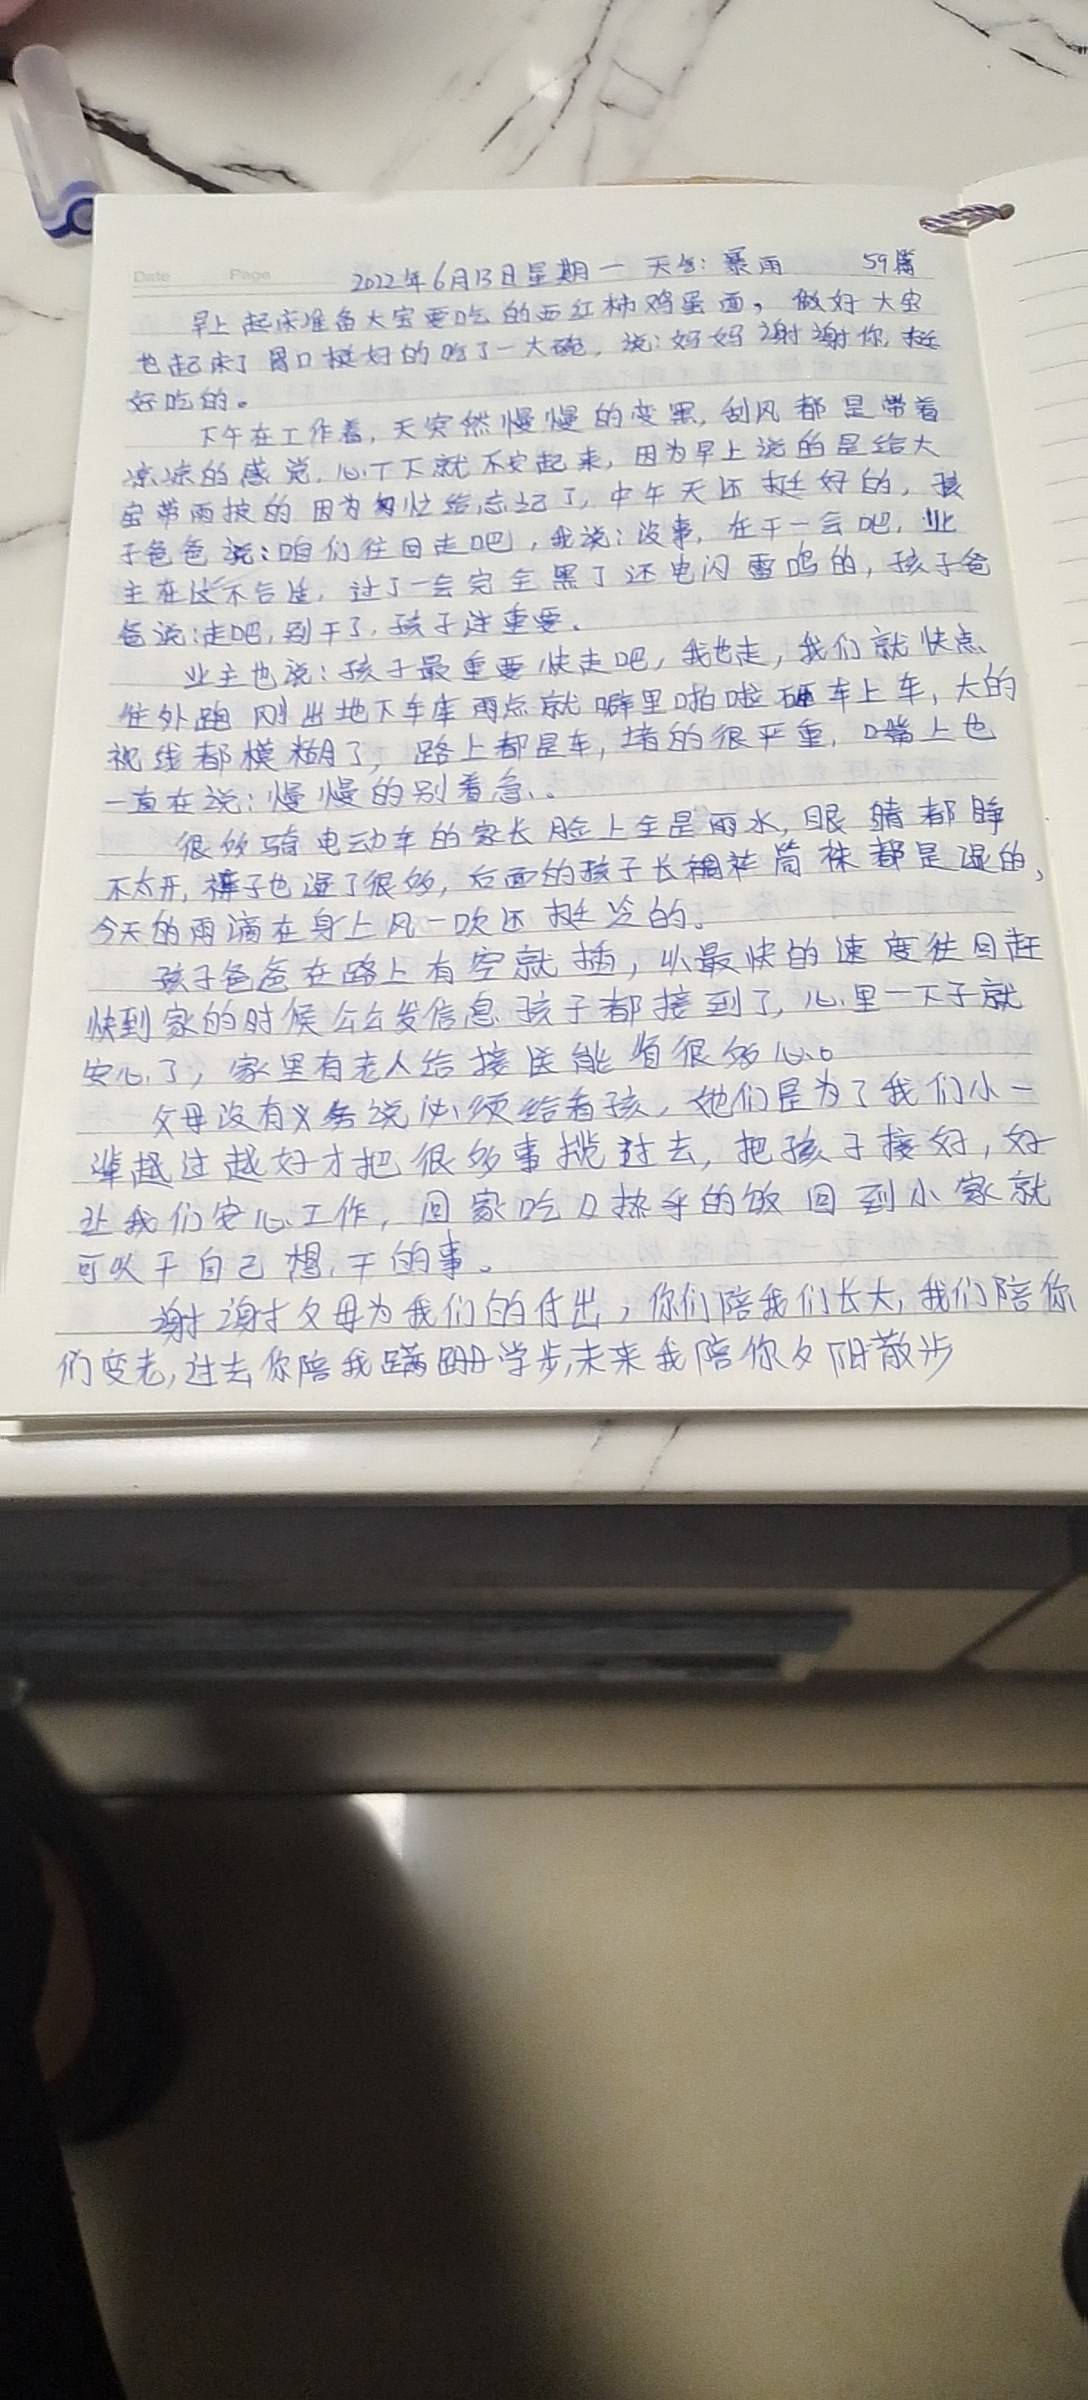 Date Page
2022年6月13日星期一 天气：暴雨 59篇
早上起床准备大宝要吃的西红柿鸡蛋面，做好大宝
也起床了胃口挺好的吃了一大碗，说：妈妈谢谢你，挺
好吃的。
下午在工作着，天突然慢慢的变黑，刮风都是带着
凉凉的感觉，心下就不安起来，因为早上说的是给大
宝带雨披的因为匆忙给忘记了，中午天还挺好的，孩
子爸爸说：咱们往回走吧，我说：没事，在干一会吧，业
主在这不合适，过了一会完全黑了还电闪雷鸣的，孩子爸
爸说：走吧，别干了，孩子进重要。
业主也说：孩子最重要快走吧，我也走，我们就快点
往外跑刚出地下车库雨点就噼里啪啦砸车上车，大的
视线都模糊了，路上都是车，堵的很严重，嘴上也
一直在说：慢慢的别着急。
很多骑电动车的家长脸上全是雨水，眼睛都睁
不太开，裤子也湿了很多，后面的孩子长裤筒袜都是湿的，
今天的雨滴在身上风一吹还挺冷的。
孩子爸爸在路上有空就插，以最快的速度往回赶
快到家的时候公公发信息孩子都接到了，心里一下子就
安心了，家里有老人给接送能省很多心。
父母没有义务说必须给看孩，她们是为了我们小一
辈越过越好才把很多事揽过去，把孩子接好，好
让我们安心工作，回家吃口热乎的饭回到小家就
可以干自己想干的事。
谢谢父母为我们的付出，你们陪我们长大，我们陪你
们变老，过去你陪我蹒跚学步，未来我陪你夕阳散步